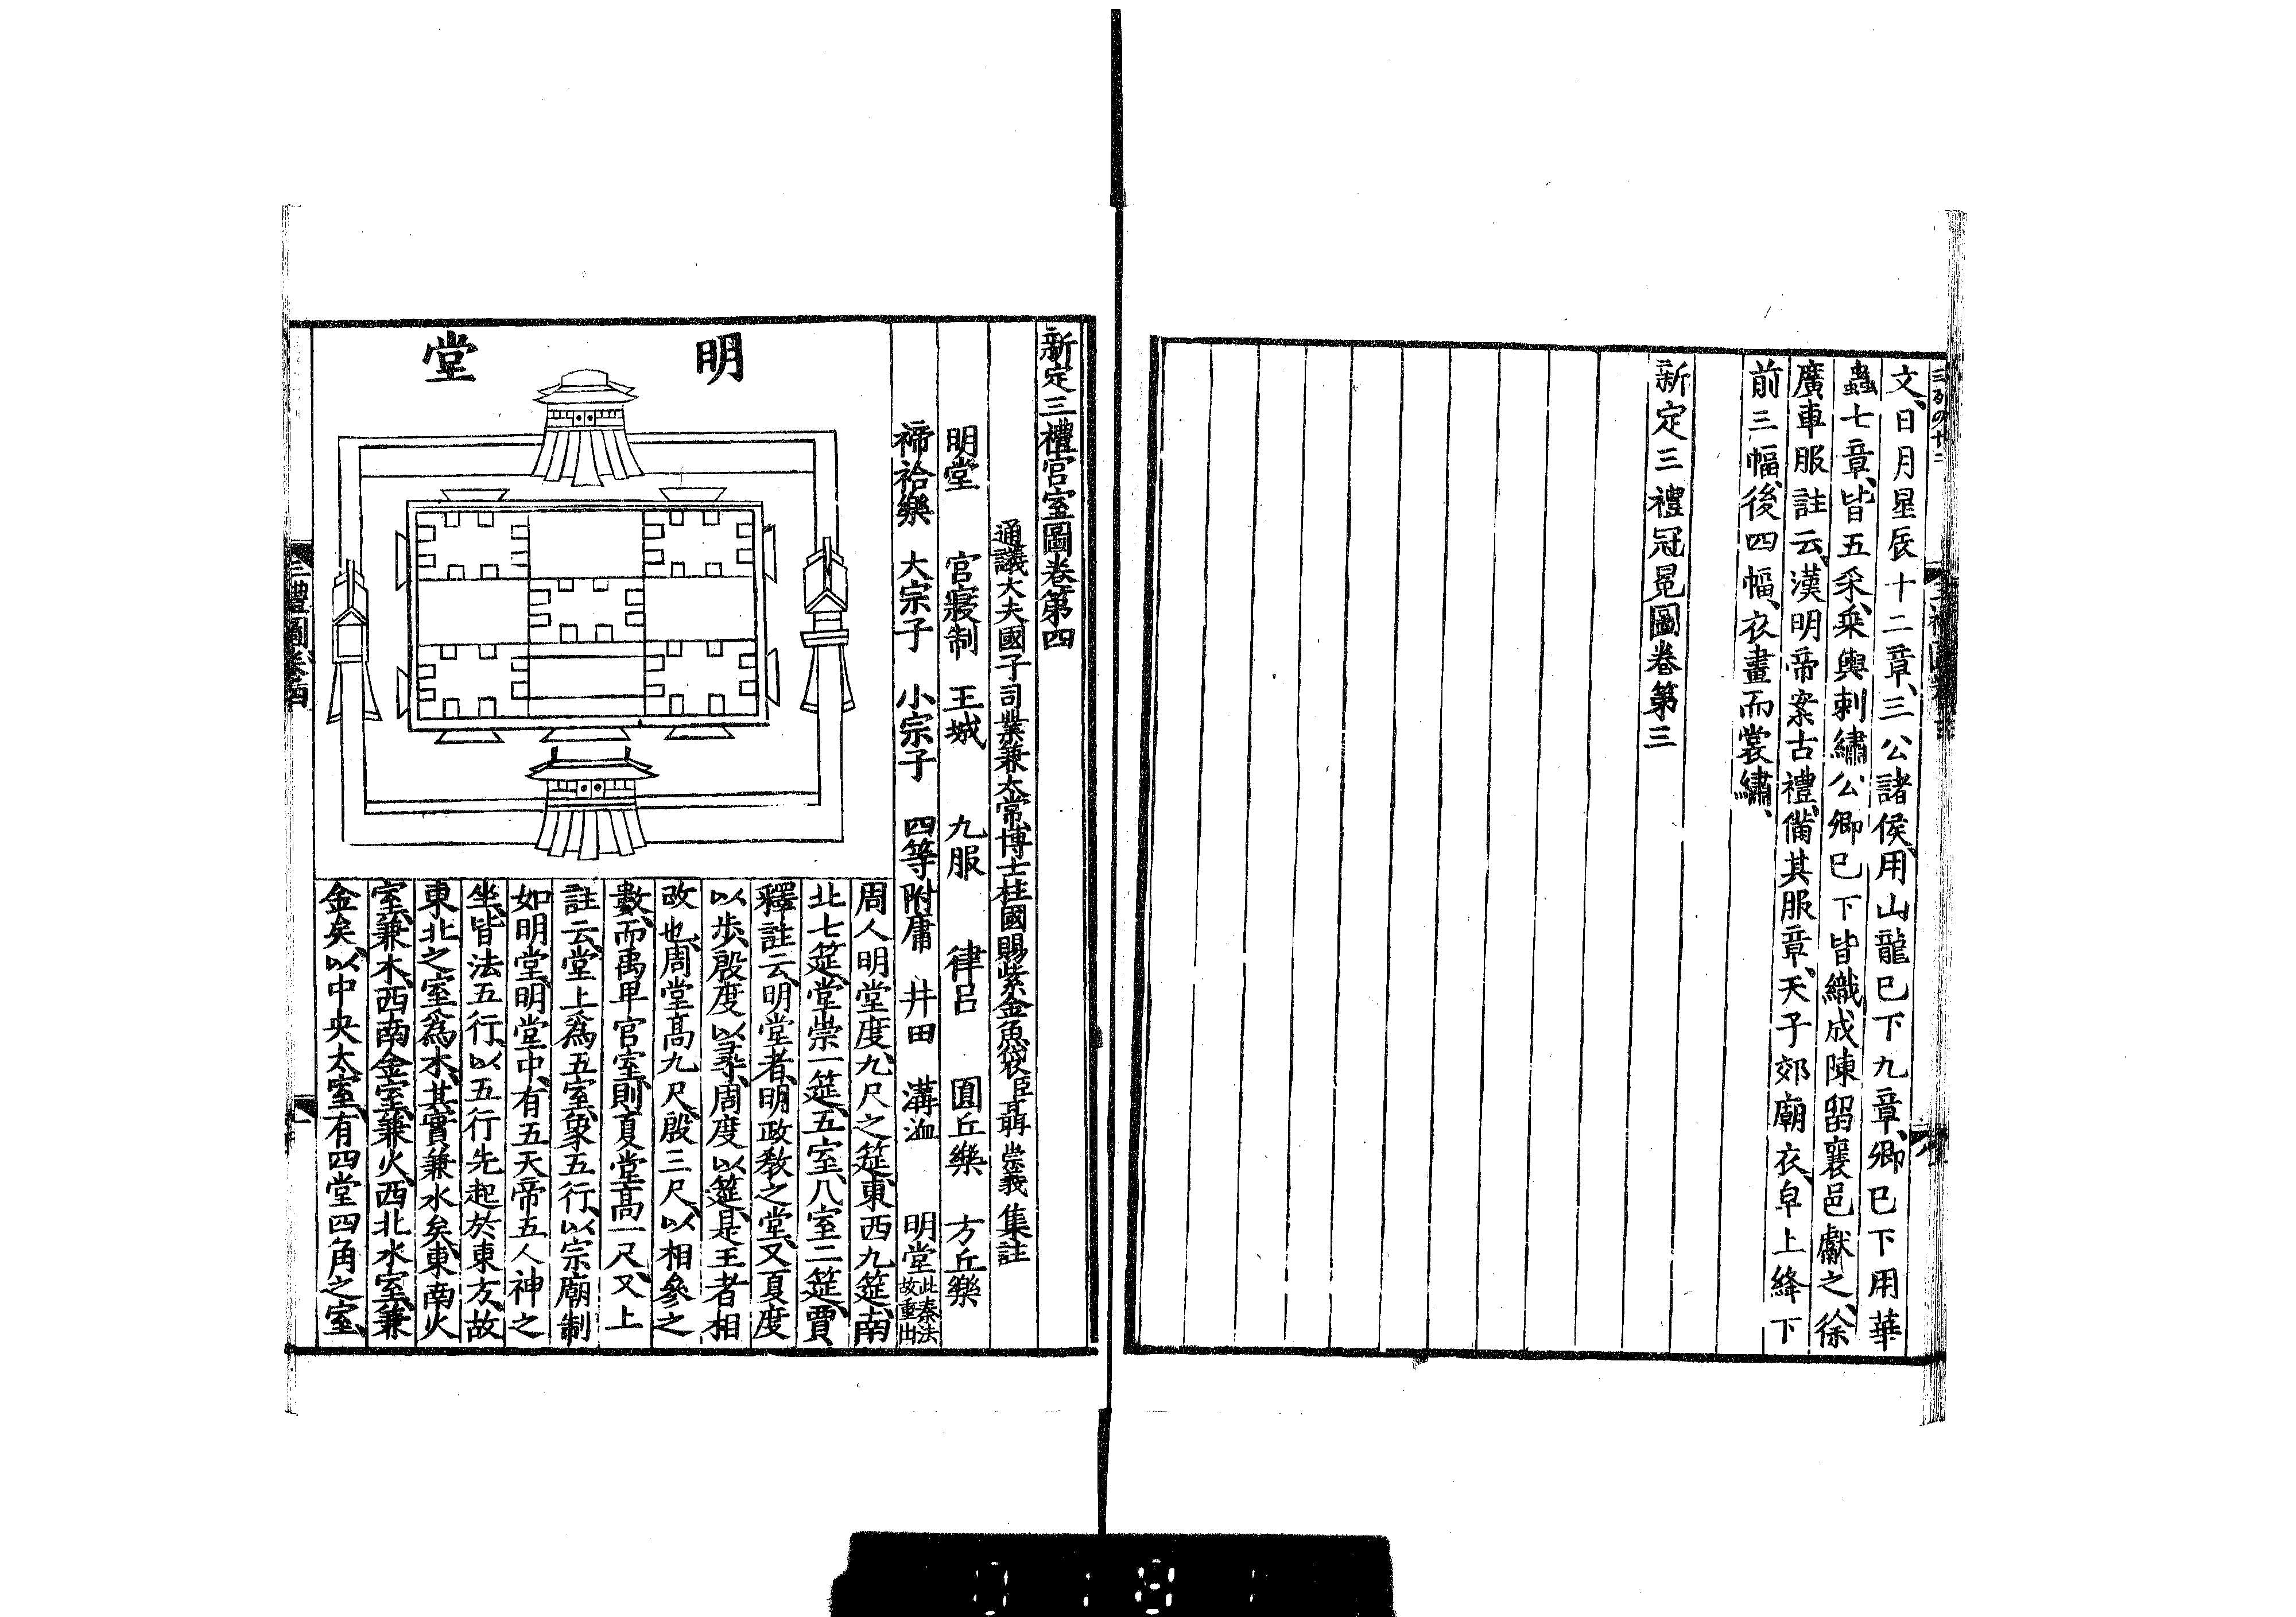 文、日月星辰十二章、三公諸侯、用山龍已下九章、卿已下用華
蟲七章、皆五采、乘輿刺繡、公卿已下皆織成、陳留襄邑獻之、徐
廣車服註云、漢明帝案古禮、備其服章、天子郊廟衣、皁上絳下
前三幅、後四幅、衣畫而裳繡、
新定三禮冠冕圖卷第三
新定三禮宮室圖卷第四
通議大夫國子司業兼太常博士柱國賜紫金魚袋臣聶崇義集註
明堂 宮寢制 王城 九服 律呂 圓丘樂 方丘樂
禘祫樂 大宗子 小宗子 四等附庸 井田 溝洫 明堂此秦法故重出
明堂
周人明堂度、九尺之筵、東西九筵、南
北七筵、堂崇一筵、五室、八室二筵、賈
釋註云、明堂者、明政教之堂、又夏度
以步、殷度以尋、周度以筵、是王者相
改也、周堂高九尺、殷三尺、以相參之
數、而禹卑宮室、則夏堂高一尺、又上
註云、堂上爲五室、象五行、以宗廟制
如明堂、明堂中、有五天帝五人神之
坐、皆法五行、以五行先起於東方、故
東北之室爲木、其實兼水矣、東南火
室、兼木、西南金室、兼火、西北水室、兼
金矣、以中央太室、有四堂四角之室、
三禮圖卷四
一